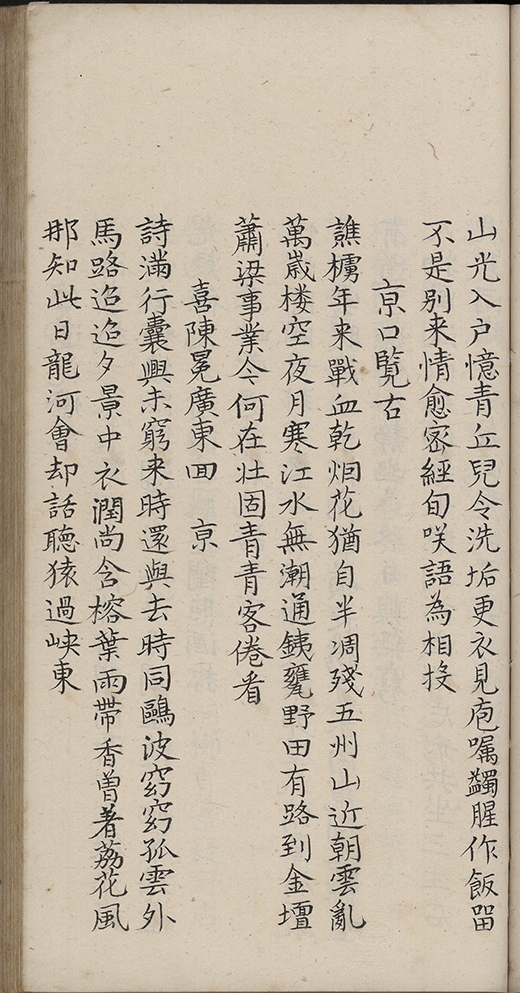 山光入户憶青丘兒令洗垢更衣見庖嘱蠲腥作飯留
不是别来情愈密經旬咲語為相投
京口覽古
譙櫓年来戰血乾烟花猶自半凋殘五州山近朝雲亂
萬嵗楼空夜月寒江水無潮通鐵甕野田有路到金壇
蕭梁事業今何在壯固青青客倦看
喜陳冕廣東回 京
詩滿行囊興未窮来時還與去時同鷗波窈窈孤雲外
馬路迢迢夕景中衣潤尚含榕葉雨帶香曽著荔花風
那知此日龍河會却話聽猿過峡東